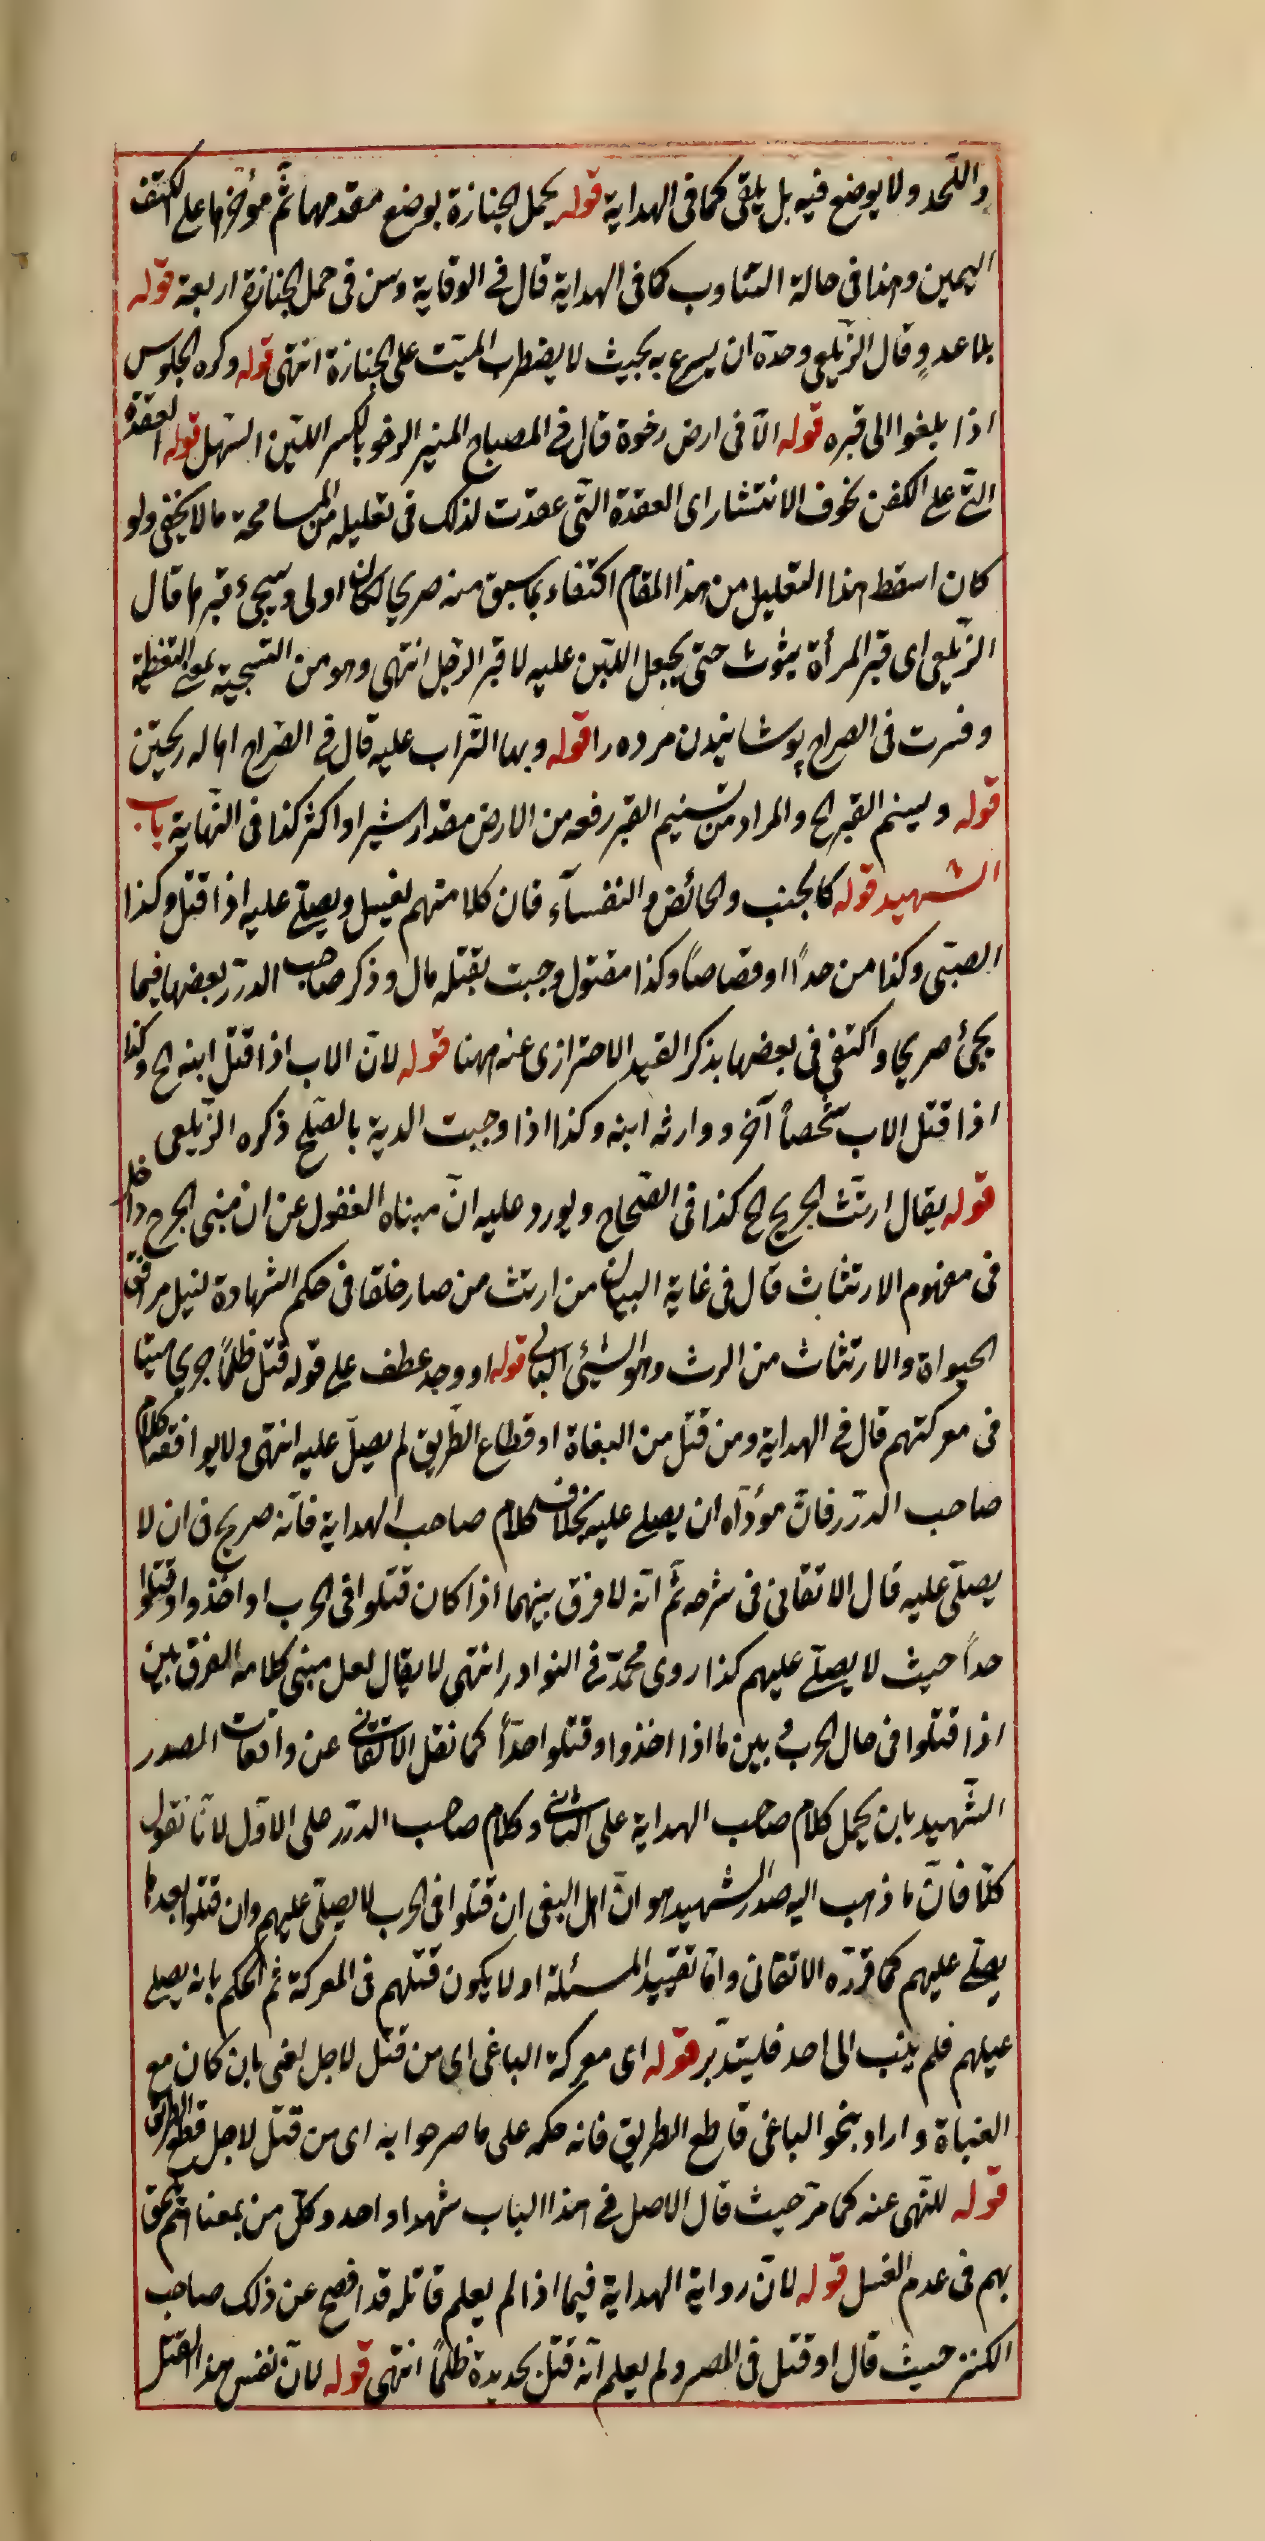 واللّحد ولا يوضع فيه بل يلقى كما فى الهداية قوله يحمل الجنازة بوضع مقدمها ثمّ مؤخرها على الكتف
اليمين وهذا فى حالة التناوب كما فى الهداية قال فى الوقاية وسن فى حمل الجنازة اربعة قوله
بلا عدوٍ وقال الزيلعى وحدّه ان يسرع به بحيث لا يضطرب الميّت على الجنازة انتهى قوله وكره الجلوس
اذا بلغوا الى قبره قوله الّا فى ارض رخوة قال فى المصباح المنير الرخو بالكسر الليّن السّهل قوله العقدة
التى على الكفن بخوف الانتشار اى العقدة التى عقدت لذلك فى تعليله من المسامحة ما لا يخفى ولو
كان اسقط هذا التعليل من هذا المقام اكتفاء بما سبق منه صريحا لكان اولى وسيجئ قبرها قال
الزيلعى اى قبر المرأة بثوب حتى يجعل اللبن عليه لا قبر الرّجل انتهى وهو من التسجية بمعنى التغطية
وفسرت فى الصراح پوشانيدن مرده را قوله ويهال التّراب عليه قال فى الصّراح اهاله ريختن
قوله ويسنم القبر الخ والمراد من تسنيم القبر رفعه من الارض مقدار شبر او اكثر كذا فى النّهاية باب
الشهيد قوله كالجنب والحائض والنفسآء فان كلا منهم يغسل ويصلّى عليه اذا قتل وكذا
الصبّى وكذا من حدّاً او قصاصاً وكذا مقتول وجبت بقتله مال وذكر صاحب الدرّر بعضها فيما
يجئ صريحا واكتفى فى بعضها بذكر القيد الاحترازى عنه ههنا قوله لانّ الاب اذا قتل ابنه الخ وكذا
اذا قتل الاب شخصاً آخر ووارثه ابنه وكذا اذا وجبت الدية بالصّلح ذكره الزّيلعى
قوله يقال ارتثّ الجريح الخ كذا فى الصّحاح ويورد عليه انّ مبناه الغفول عن ان مبنى الجرح داخل
فى مفهوم الارتثاث قال فى غاية البيان من ارتث من صار خلقا فى حكم الشهادة لنيل مرافق
الحيواة والارتثاث من الرث وهو الشيئ البالى قوله او وجد عطف على قوله قتل ظلماً جريحا ميتا
فى معركتهم قال فى الهداية ومن قتل من البغاة او قطاع الطّريق لم يصلّ عليه انتهى ولا يوافقه كلام
صاحب الدرّر فانّ مؤدّاه ان يصلى عليه بخلاف كلام صاحب الهداية فانّه صريح فى ان لا
يصلّى عليه قال الاتقانى فى شرحه ثم انّه لا فرق بينهما اذا كان قتلوا فى الحرب او اخذوا وقتلوا
حداً حيث لا يصلّى عليهم كذا روى محمدّ فى النوادر انتهى لا يقال لعل مبنى كلامه الفرق بين
اذا قتلوا فى حال الحرب وبين ما اذا اخذوا وقتلوا حدّاً كما نقل الاتقانى عن واقعات الصدر
الشّهيد بان يحمل كلام صاحب الهداية على الثانى وكلام صاحب الدرّر على الاوّل لانّا نقول
كلّا فانّ ما ذهب اليه صدر الشهيد هو انّ اهل البغى ان قتلوا فى الحرب لا يصلّى عليهم وان قتلوا بعدها
يصلّى عليهم كما قرّره الاتقانى وامّا تقييد المسئلة اولا بكون قتلهم فى المعركة ثم الحكم بانه يصلى
عيلهم فلم ينسب الى احد فليتدبّر قوله اى معركة الباغى اى من قتل لاجل البغى بان كان مع
البغاة واراد بنحو الباغى قاطع الطريق فانه حكمه على ما صرحوا به اى من قتل لاجل قطع الطريق
قوله للنّهى عنه كما مرّ حيث قال الاصل فى هذا الباب شهدا واحد وكلّ من بمعناهم يلحق
بهم فى عدم الغسل قوله لانّ رواية الهداية فيما اذا لم يعلم قاتله قد افصح عن ذلك صاحب
الكنز حيث قال او قتل فى المصر ولم يعلم انّه قتل بحديدة ظلماً انتهى قوله لانّ نفس هذا القتل